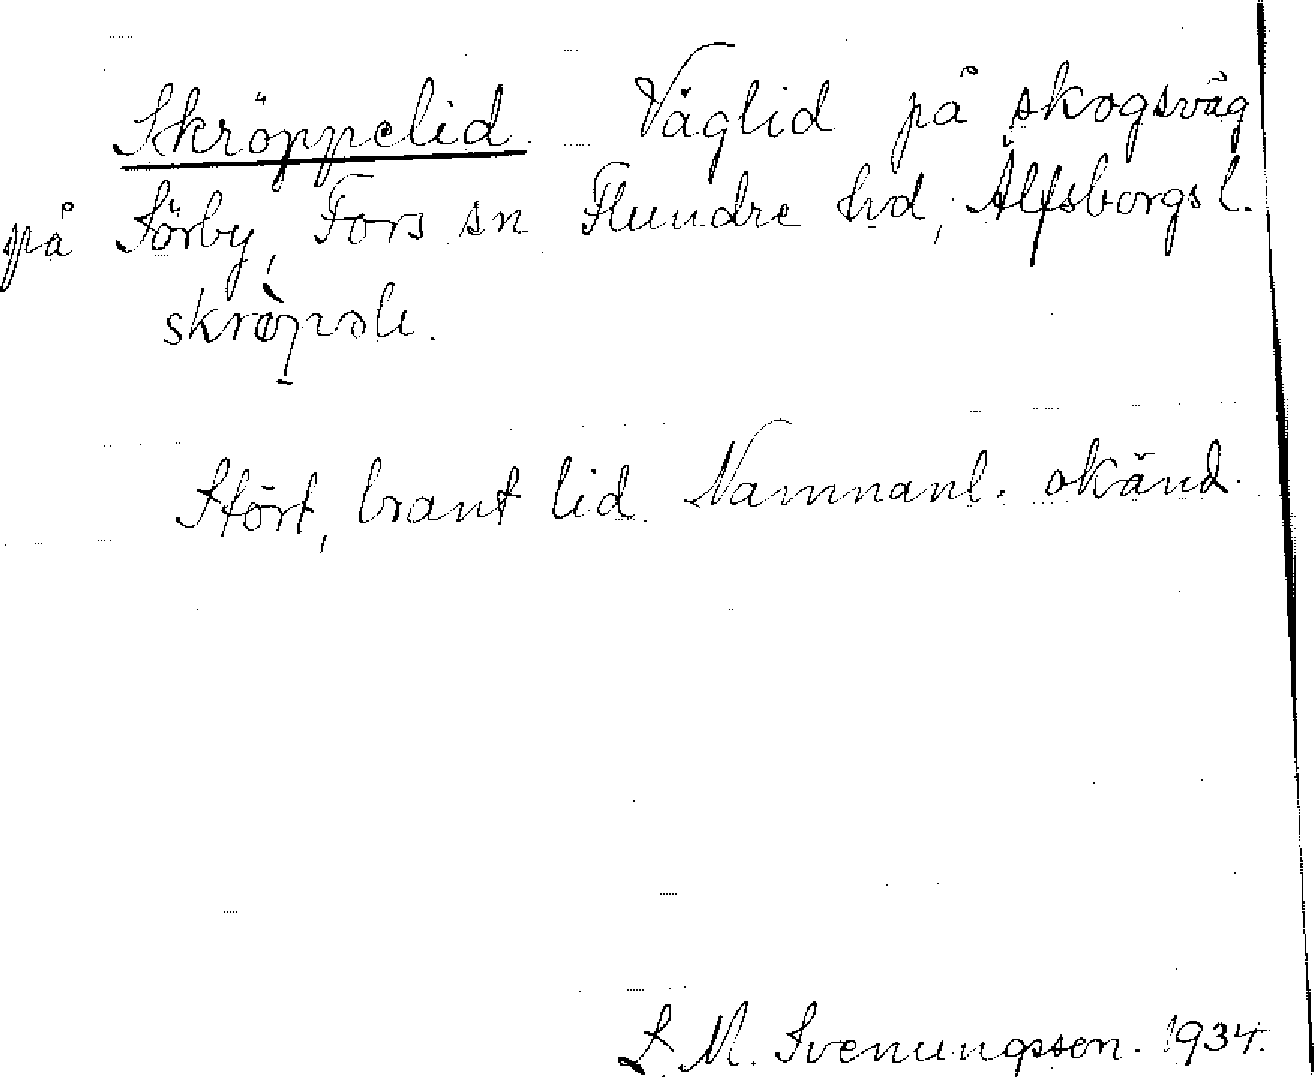 Skröppelid. Väglid på skogsväg
på Sörby, Fors sn Flundre hd, Älfsborgs l.
Stört, brant lid. Namnanl. okänd.
L. M. Svenungsson. 1934.